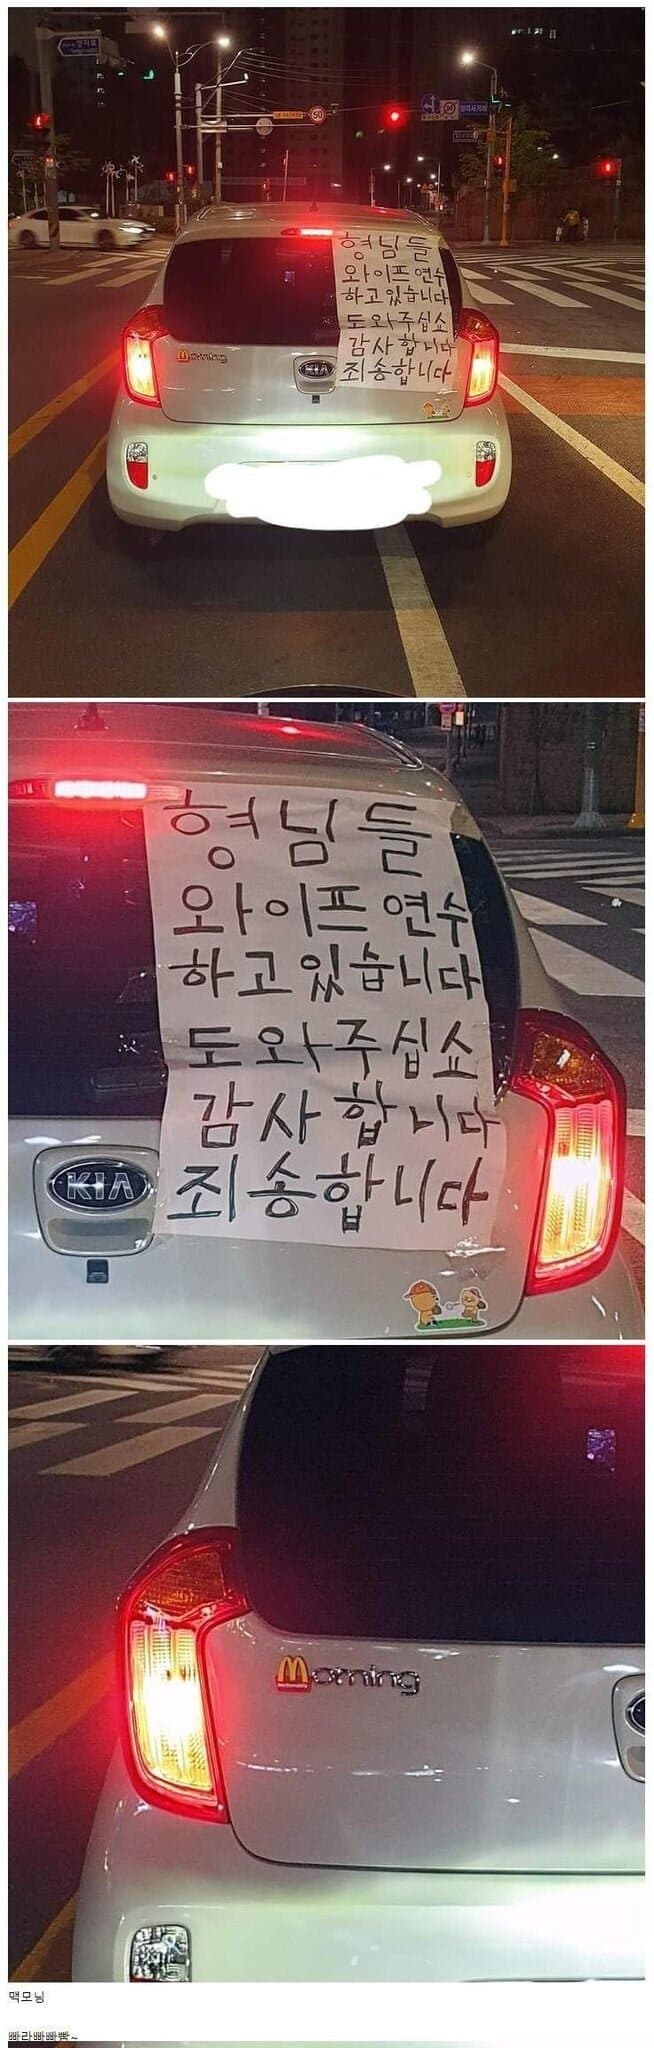 양지로
50
형님들
와이프 연수
하고있습니다
도와주십쇼
감사합니다
죄송합니다
Morning
KIA
형님들
와이프 연수
하고있습니다
도와주십쇼
감사합니다
죄송합니다
KIA
Morning
맥모닝
빠라빠빠빰~